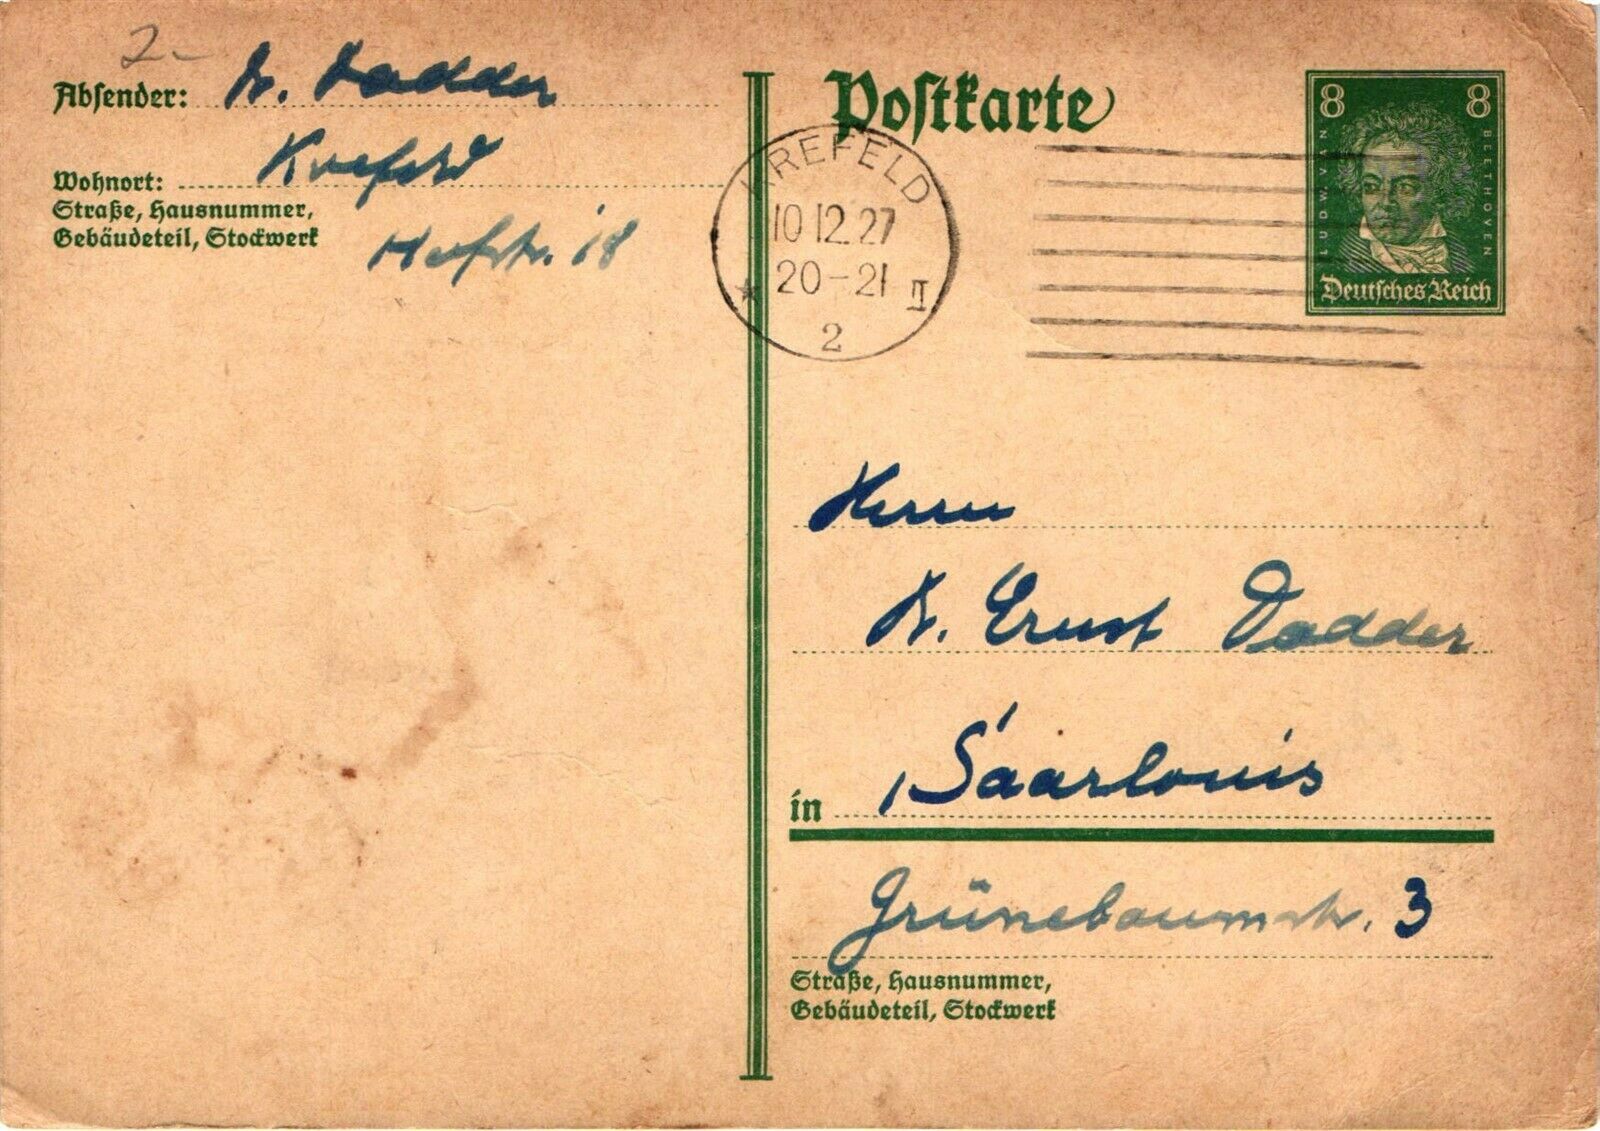 2-
Absender: Dr. Dadder
Wohnort: Krefeld
Straße, Hausnummer,
Gebäudeteil, Stockwerk
18
Postkarte
KREFELD
10 12.27
20-21 II
* 2
8 8
LUDW. VAN BEETHOVEN
Deutsches Reich
Herrn
Dr. Ernst Dadder
in Saarlouis
Grünebaumstr. 3
Straße, Hausnummer,
Gebäudeteil, Stockwerk